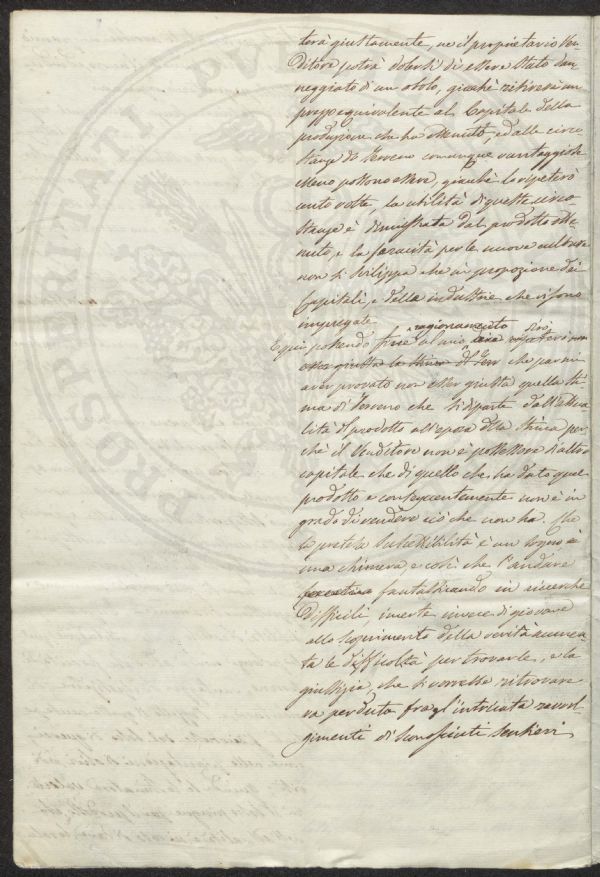 terà giustamente, ne il proprietario Ven
ditore potrà dolersi di essere stato dan
neggiato di un obolo, giacchè ritirerà un
prezzo equivalente al Capitale della
produzione che ha ottenuto, ed alle circo
stanze del terreno comunque vantaggiose
esser possono essere, giacchè lo ripeterò
cento volte, la utilità di queste circo
stanze è dimostrata dal prodotto otte
nuto, e la feracità per le nuove culture
non si sviluppa che in proporzione dei
Capitali, e della industria che vi sono
impiegate
E qui potendo fine al mio ragionamento dirò
che parmi
aver provato non esser giusta quella sti
ma di terreno che si diparte dall'attua
lità del prodotto all'epoca della stima per
chè il Venditore non è possessore d'altro
capitale che di quello che ha dato quel
prodotto e conseguentemente non è in
grado di vendere ciò che non ha. Che
la pretesa suscettibilità è un sogno e
una chimera, e così che l'andare
fantasticando in ricerche
difficili, incerte invece di giovare
allo scoprimento della verità aumen
ta le difficoltà per trovarla, e la
giustizia che si vorrebbe ritrovare
va perduta fra gl'intricati ravvol
gimenti di sconosciuti sentieri
PROSPERITATI PVBL